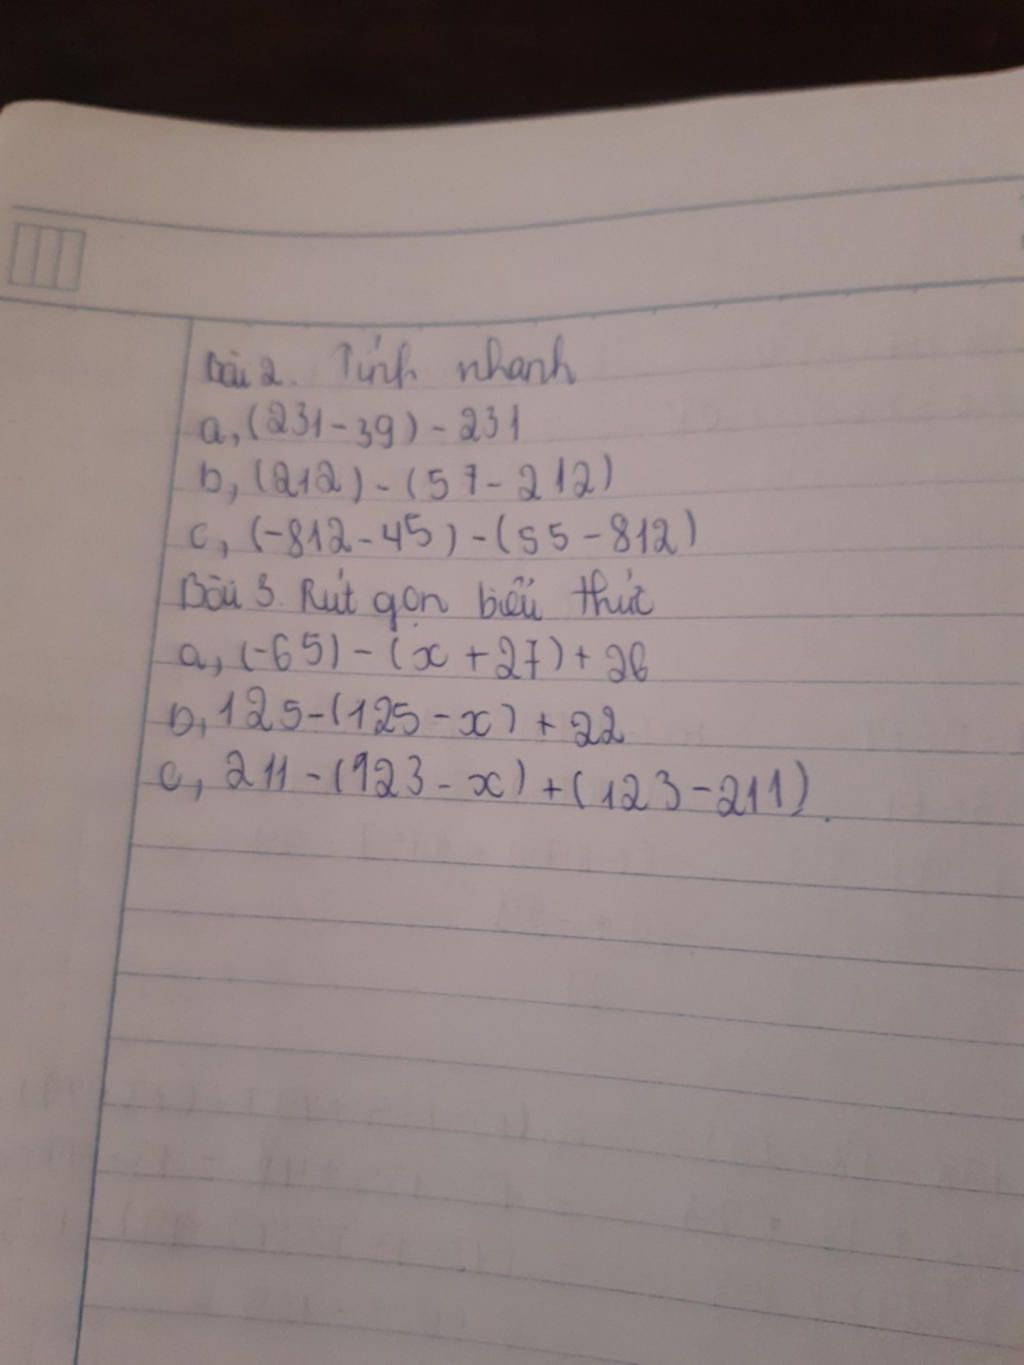 Bài 2. Tính nhanh
a, (231-39) - 231
b, (212) - (57 - 212)
c, (-812 - 45) - (55 - 812)
Bài 3. Rút gọn biểu thức
a, (-65) - (x + 27) + 26
b, 125 - (125 - x) + 22
c, 211 - (123 - x) + (123 - 211).